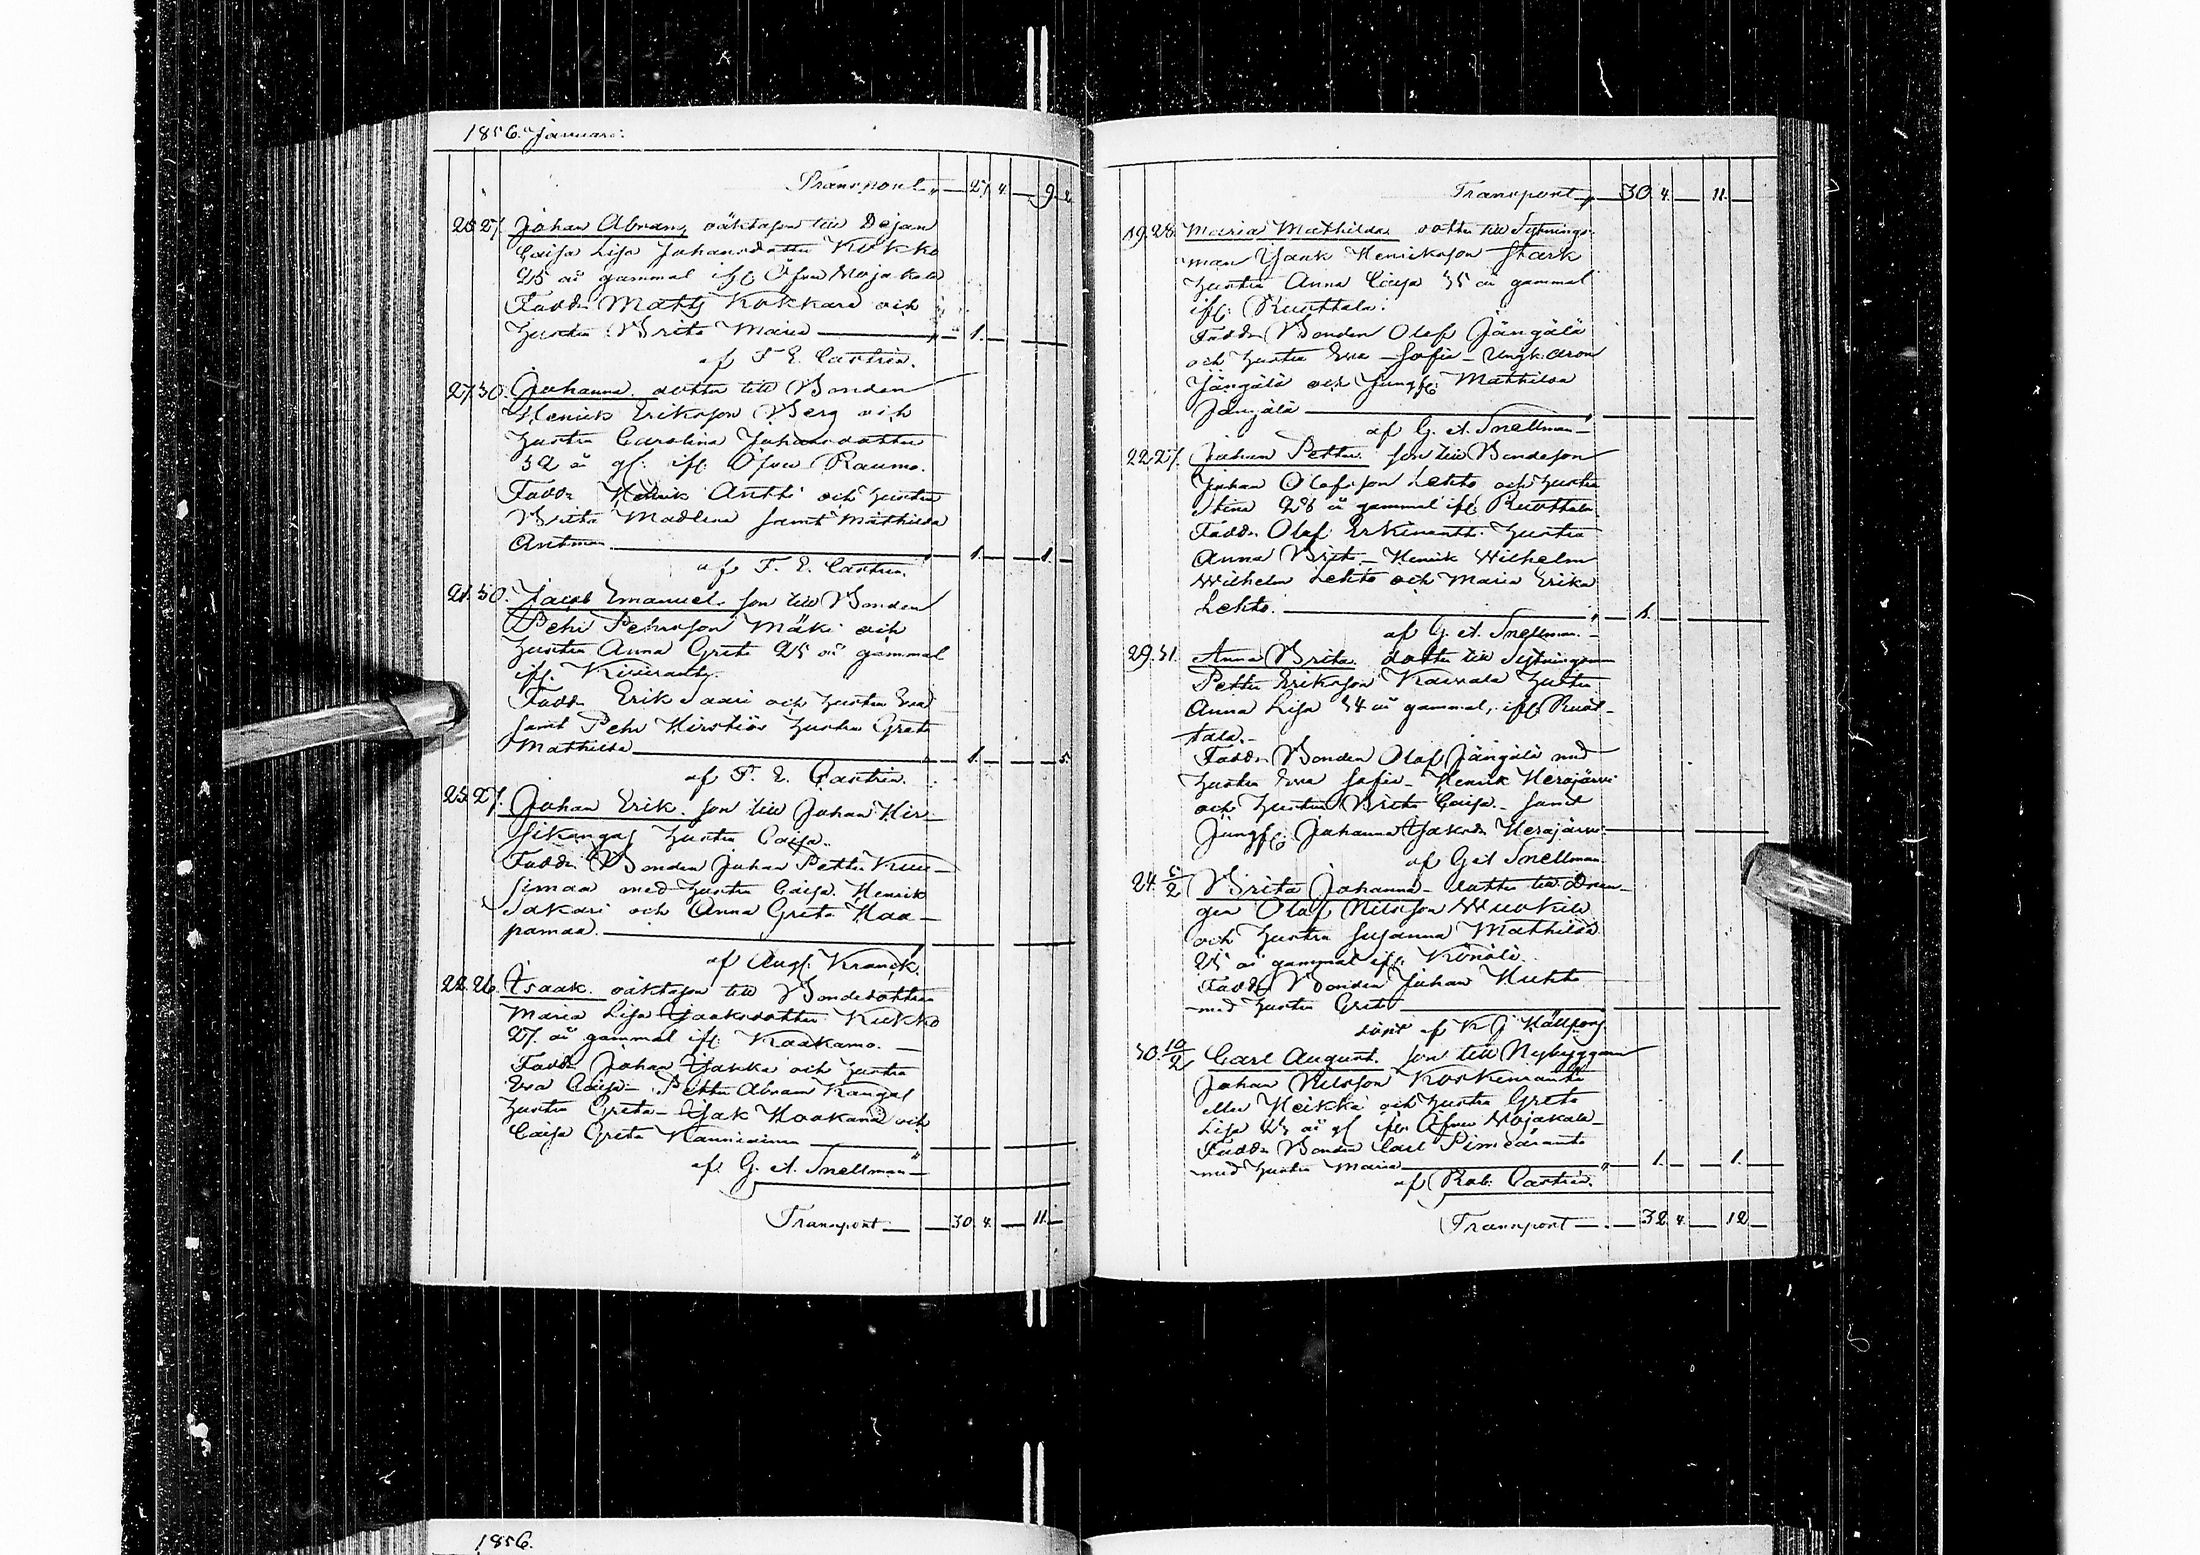 1856. Januari.
Transport 27. 4. 9. 2
25. 27. Johan Abram, oäktason till Dejan
Caisa Lisa Johansdotter Kokko
25 år gammal ifr. Öfver Mojakala
Faddr Matts Kokkare och
hustru Brita Maria 1.
af F. E. Castrén.
27. 30. Johanna dotter till Bonden
Henrik Eriksson Berg och
hustru Carolina Johansdotter
32 år gl: ifr. Öfver Raumo.
Faddr Henrik Antti och hustru
Brita Madlena samt Mathilda
Antman. 1. 1.
af F. E. Castrén.
21. 30. Jacob Emanuel. son till Bonden
Pehr Pehrsson Mäki och
hustru Anna Greta 25 år gammal
ifr. Kiviranta.
Faddr Erik Saari och hustru Eva
samt Pehr Hirstiös hustru Greta
Mathilda 1. 5
af F. E. Castrén.
25. 27. Johan Erik. son till Johan Hir-
sikangas hustru Caisa.
Faddr Bonden Johan Petter Kuu-
simaa med hustru Caisa. Henrik
Sakari och Anna Greta Haa-
pamaa.
af Aug. Kranck.
22. 26. Isaak. oäktason till Bondedottren
Maria Lisa Isaksdotter Kukko
27. år gammal ifr. Kaakamo.
Faddr Johan Jaakko och hustru
Eva Caisa. Petter Abram Kangas
hustru Greta. Isak Haakana och
Caisa Greta Kanniainen
af G. A. Snellman
Transport 30. 4. 11.
Transport 30. 4. 11.
19. 28. Maria Mathilda dotter till Sytnings-
man Isaak Henriksson Stark
hustru Anna Caisa 35 år gammal
ifr. Ruottala.
Faddr Bonden Olof Jängälä
och hustru Eva Sofia. Ungk. Aron
Jängälä och Jungfr. Mathilda
Jängälä
af G. A. Snellman
22. 27. Johan Petter. son till Bondeson
Johan Olofsson Lehto och hustru
Stina 28 år gammal ifr. Ruottala
Faddr Olof Erkinantti hustru
Anna Brita. Henrik Wilhelm
Wilhelm Lehto och Maria Erika
Lehto. 1.
af G. A. Snellman.
29. 31. Anna Brita. dotter till Sytningsman
Petter Eriksson Kaivala hustru
Anna Lisa 34 år gammal, ifr. Ruot-
tala.
Faddr Bonden Olof Jängälä med
hustru Eva Sofia. Henrik Herajärvi
och hustru Brita Caisa. samt
Jungfr. Johanna Isaksdr Herajärvi
af G A Snellman.
24. 5/2 Brita Johanna dotter till Drän-
gen Olof Nilsson Wuokila
och hustru Susanna Mathilda
25 år gammal ifr. Könölä.
Faddr Bonden Johan Huhta
med hustru Greta
döpt af K J Hällfors
30. 10/2 Carl August. son till Nybyggaren
Johan Nilsson Koskenranta
eller Heikka och hustru Greta
Lisa år gl ifr. Öfver Mojakala
Faddr Bonden Carl Pimeäranta
med hustru Maria 1. 1.
af Rob. Castrén.
Transport 32 4. 12
1856.